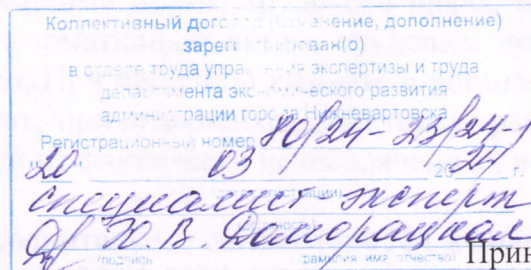 Коллективный договор (изменение, дополнение)
зарегистрирован(о)
в отделе труда управления экспертизы и труда
департамента экономического развития
администрации города Нижневартовска
Регистрационный номер 80/24-23/24-1
"20" 03 2024 г.
(дата регистрации)
специалист эксперт
(должность)
Ю. В.
(подпись фамилия имя отчество)